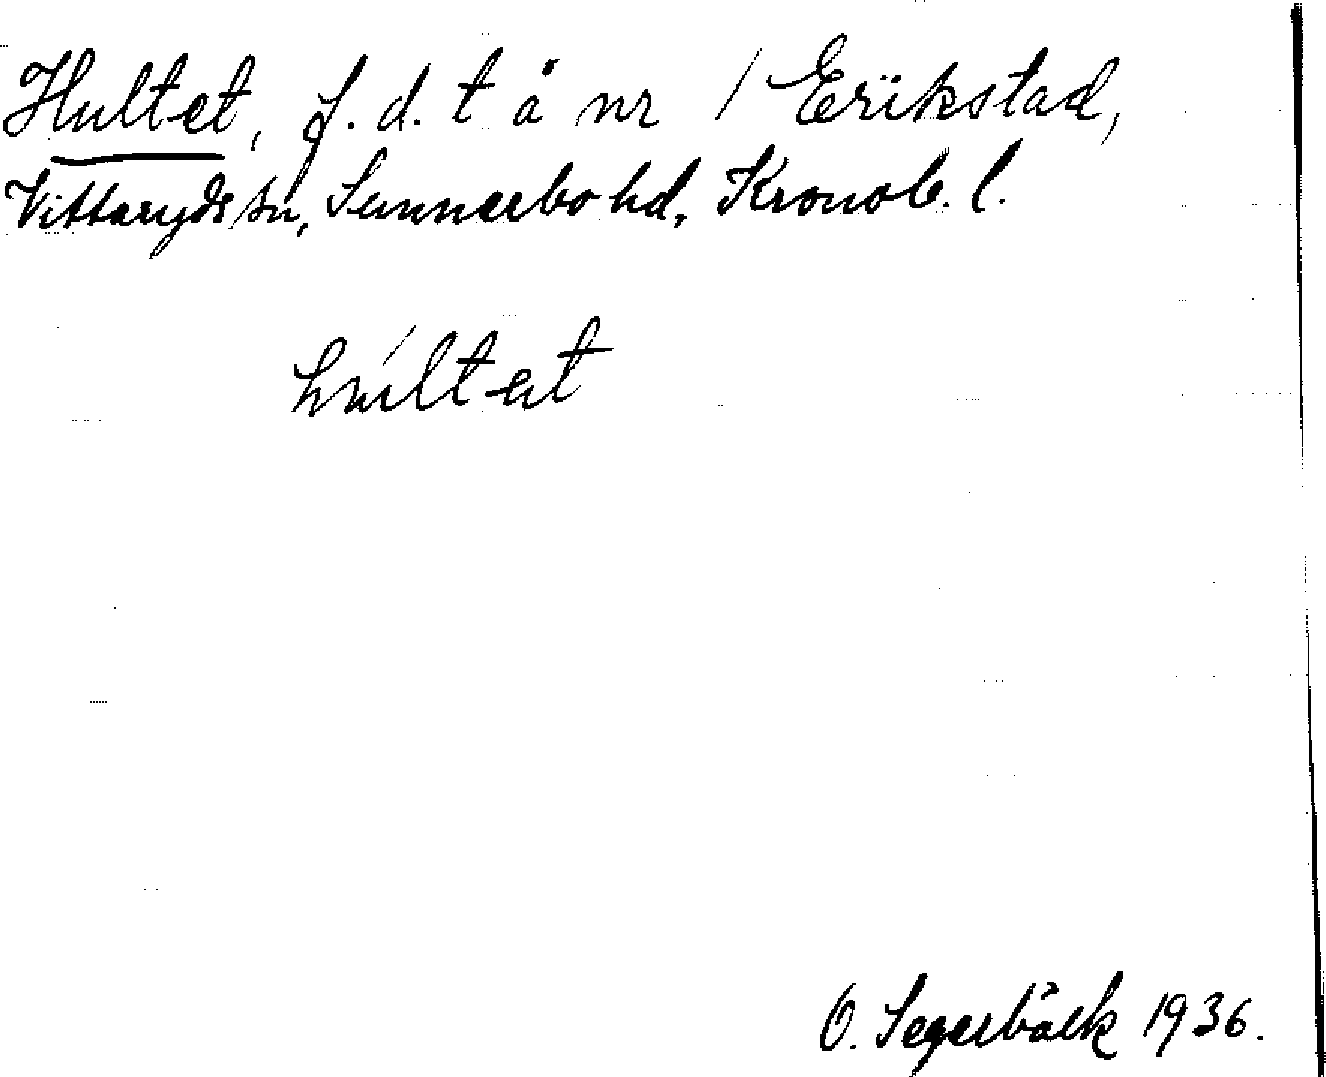 Hultet, f.d. t å nr 1 Erikstad,
Vittaryds sn, Sunnerbo hd, Kronob. l.
húltet
O. Segerbäck 1936.